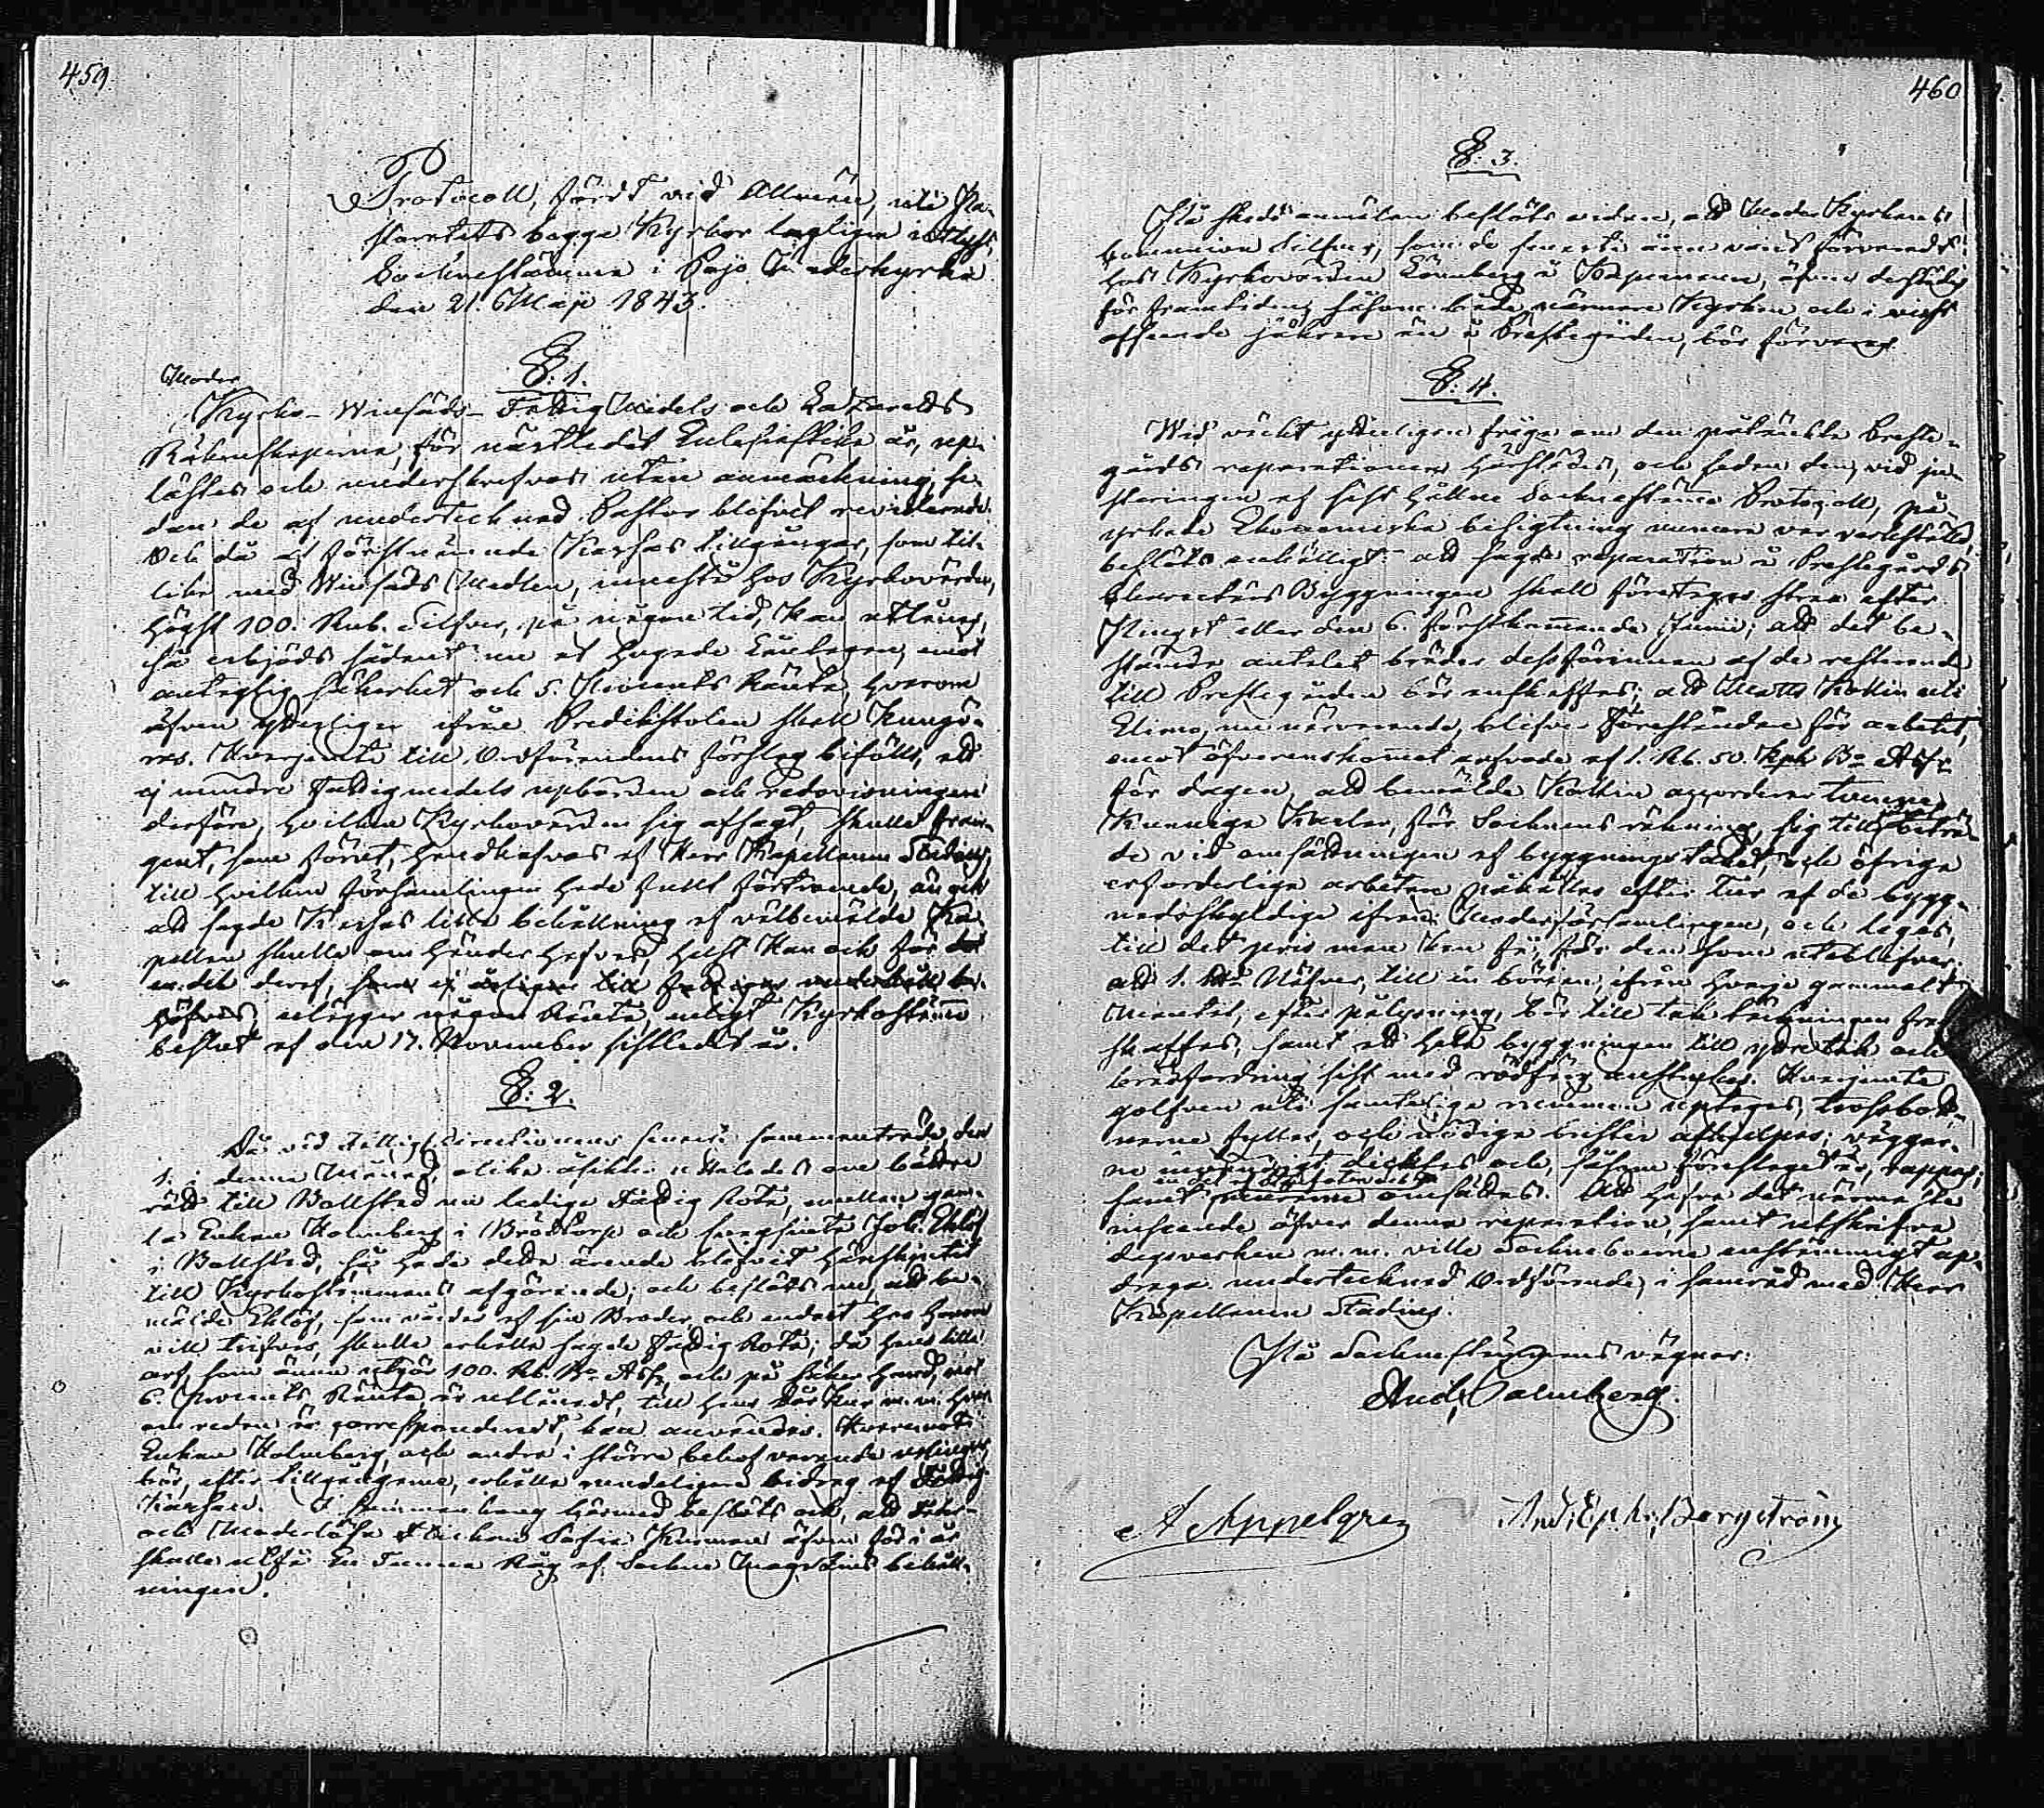 459.
Protocoll, fördt vid Allmän, uti Pa-
storatets begge Kyrkor lagligen utlyst,
Sockenstämma i Pojo Moderkyrka
den 21. Maji 1843.
§. 1.
Moder
Kyrko- Winsäds- Fattig Medels och Lazaretts
Räkenskaperna, för nästledet Eclesiastike år, upp-
lästes och underskrefvos utan anmärkning, se-
dan de af undertecknad Pastor blifvit reviderade.
Och då af förstnämnde Kassas tillgångar, som til-
lika med Winsäds Medlen, innestå hos Kyrkovärden,
högst 100. Rub. Silfver, på någon tid, kan utlånas,
så erbjöds sådant nu åt hugade Låntagare, mot
antaglig säkerhet och 5. Procents Ränta, hvarom
äfven ytterligare ifrån Predikstolen skall kungö-
ras. Hvarjemte till Ordförandens förslag biföllt, att
ej mindre Fattigmedels upbörden och redovisningen
derföre, hvilken Kyrkovärden sig afsagt, skulle fram-
gent, som förut, handhafvas af Herr Kapellanen Stadius,
till hvilken församlingen hade fullt förtroende, än ock
att sagde Kassas lilla behållning af välbemälde Ka-
pellan skulle om händer hafvas, helst han ock för
en del deraf, som ej årligen till fattigas underhåll be-
höfves, erlägger någon Ränta, enligt Kyrkostämmo
beslut af den 17. November sistledet år.
§. 2.
Då vid Fattig Directionens senaste sammanträde, den
1. i denna Månad, olika åsikter uttalades om bättre
rätt till Bollstad nu lediga Fattig Rote, emellan gam-
la Enkan Holmberg i Brödtorp och Joh. Eklöf
i Bollstad, så hade detta ärende blifvit hänskjutit
till Kyrkostämmans afgörande; och beslöts nu, att be-
mälde Eklöf, som vårdas af sin Broder, och endast hos honom
vill trifvas, skulle erhålla sagde Fattig Rote; då hans lilla
arf, som ännu utgör 100. Rb. Bo Assg. och på säker hand, mot
6. Procents Ränta, är utlånadt, till hans kläder m. m. hvar-
om redan är correspondradt, kan användas. Hvaremot
Enkan Holmberg, och andra i större behof varande
bör, efter tillgångarne, erhålla nödeligen bidrag af Fattig
Kassan. I sammanhang härmed beslöts ock, att Fader-
och Moderlösa Flickan Sofia äfven för i år
skulle utfå En Tunna Råg af Socken Magazins behåll-
ningen.
460
§. 3.
På skedd anmälan beslöts vidare, att Moder Kyrkans
Communion Silfver, som de senaste åren varit förvaradt
hos Kyrkovärden Lönnberg i Kåpermann, äfven derstädes
för framtiden, såsom både närmare Kyrkan och i visst
afseende säkrare än i Prestegården, bör förvaras.
§. 4.
Wid väckt ytterligare fråga om den påtänkte Preste-
gårds reparationen härstädes, och sedan den, vid ju-
steringen af sist hållne Sockenstämmo Protocoll, på-
yrkade Ekonomiska besigtning numera var verkställd,
beslöts enhälligt: att sagde reparation å Prestegårds
Characters Byggningen skall företagas strax efter
Pingst eller den 6. förstkommande Junii; att det be-
stämda antalet bräder dessförinnan af de resterande
till Prestegården bör anskaffas; att Matts Kottin uti
Elimo, nu närvarande, blifver förestånden för arbetet,
emot öfverenskommet arfvode af 1. Rb. 50. Kpk Bo Assg.
för dagen, att bemälde Kottin accorderar tvenne
kunniga Karlar, för Socknens räkning, sig till biträ-
de vid omsättningen af byggningstaket, och öfriga
erforderliga arbeten påkallas efter tur af de bygg-
nadsskyldige ifrån Moderförsamlingen, och legas,
till det pris man kan få, för den som uteblifver.
att 1. Näfver, till en början, ifrån hvarje gammalt
Mantal, efter pålysning, bör till taktäckningen fram-
skaffas, samt att hela byggningen till ytre tak och
brädfordring sist med rödfärg anstrykes. Hvarjemte
golfven uti samtelige rummen uptages, trossbott-
narne fyllas, och nödiga brister afhjelpas; väggar-
ne invändigt dicktas och, såsom föreslaget är, rappas;
samt omsättes. Att hafva det närmaste
inseende öfver denna reparation, samt utskrifva
dagsverken m. m. ville Sockneboerna enstämmigt up-
draga undertecknad Ordförande, i samråd med Herr
Kapellanen Stadius.
På Sockenstämmans vägnar:
And. Palmberg.
A Appelgren
And: Eph. Bergström